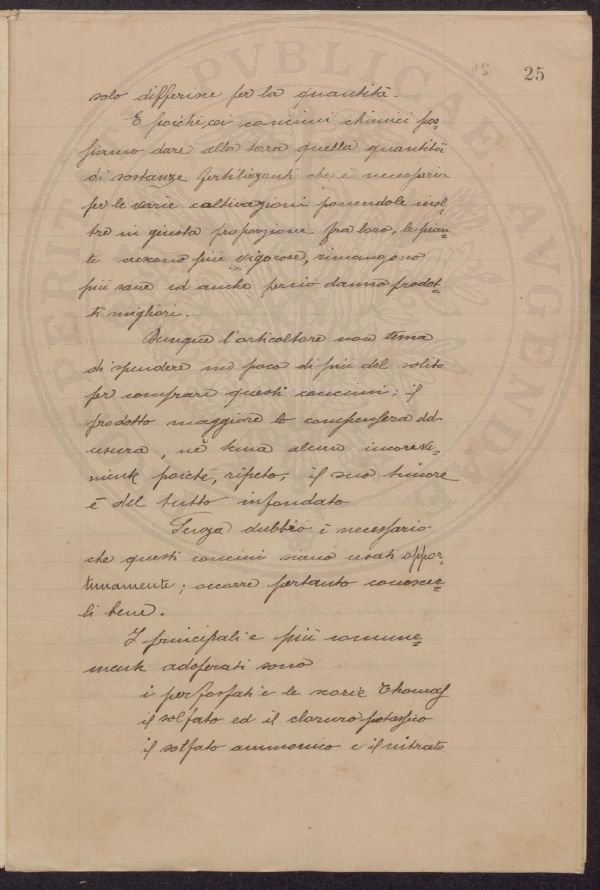 25
solo differisce per la quantità.
E poichè, coi concimi chimici pos=
siamo dare alla terra quella quantità
di sostanze fertilizzanti che è necessaria
per le varie coltivazioni ponendole inol=
tre in giusta proporzione fra loro, le pian=
te crescono più vigorose, rimangono
più sane ed anche perciò danno prodot=
ti migliori.
Dunque l'orticoltore non tema
di spendere un poco di più del solito
per comprare questi concimi; il
prodotto maggiore lo compenserà ad
usura, nè tema alcun inconve=
niente poichè, ripeto, il suo timore
è del tutto infondato
Senza dubbio è necessario
che questi concimi siano usati oppor=
tunamente; occorre pertanto conoscer=
li bene.
I principali e più comune=
mente adoperati sono
i perfosfati e le scorie Thomas
il solfato ed il cloruro potassico
il solfato ammonico e il nitrato
PVBLICAE AVGENDAE